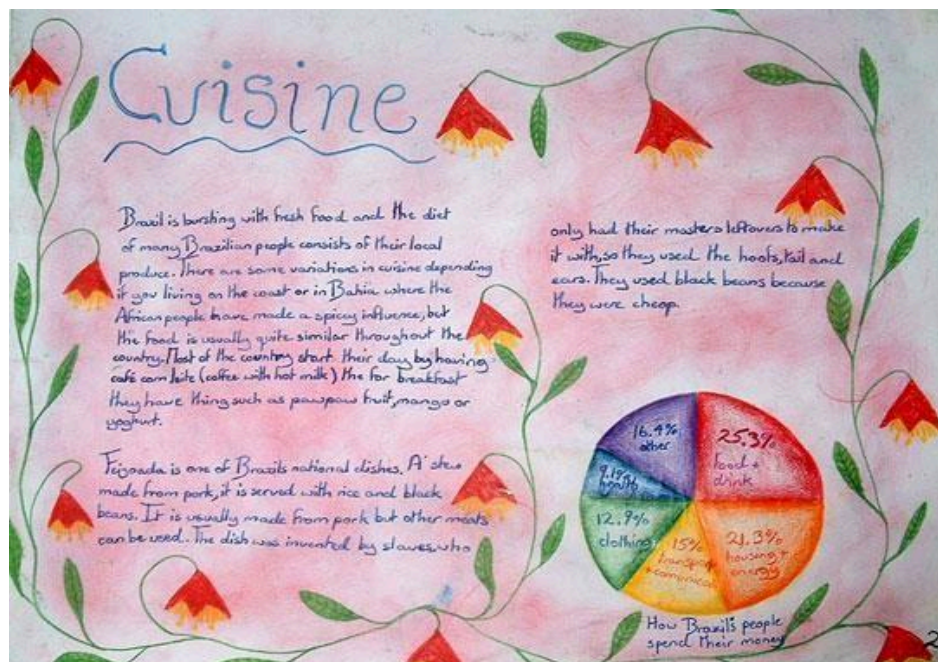 Cuisine
Brazil is bursting with fresh food and the diet
of many Brazilian people consists of their local
produce. There are some variations in cuisine depending
if you living on the coast or in Bahia where the
African people have made a spicy influence, but
the food is usually quite similar throughout the
country. Most of the country start their day by having
café com leite (coffee with hot milk) the for breakfast
they have thing such as pawpaw fruit, mango or
yoghurt.
Feijoada is one of Brazils national dishes. A stew
made from pork, it is served with rice and black
beans. It is usually made from pork but other meats
can be used. The dish was invented by slaves who
only had their masters leftovers to make
it with, so they used the hoofs, tail and
ears. They used black beans because
they were cheap.
16.4%
other
25.3%
food +
drink
9.1%
health
12.9%
clothing
15%
transport
21.3%
housing +
energy
How Brazil's people
spend their money
2